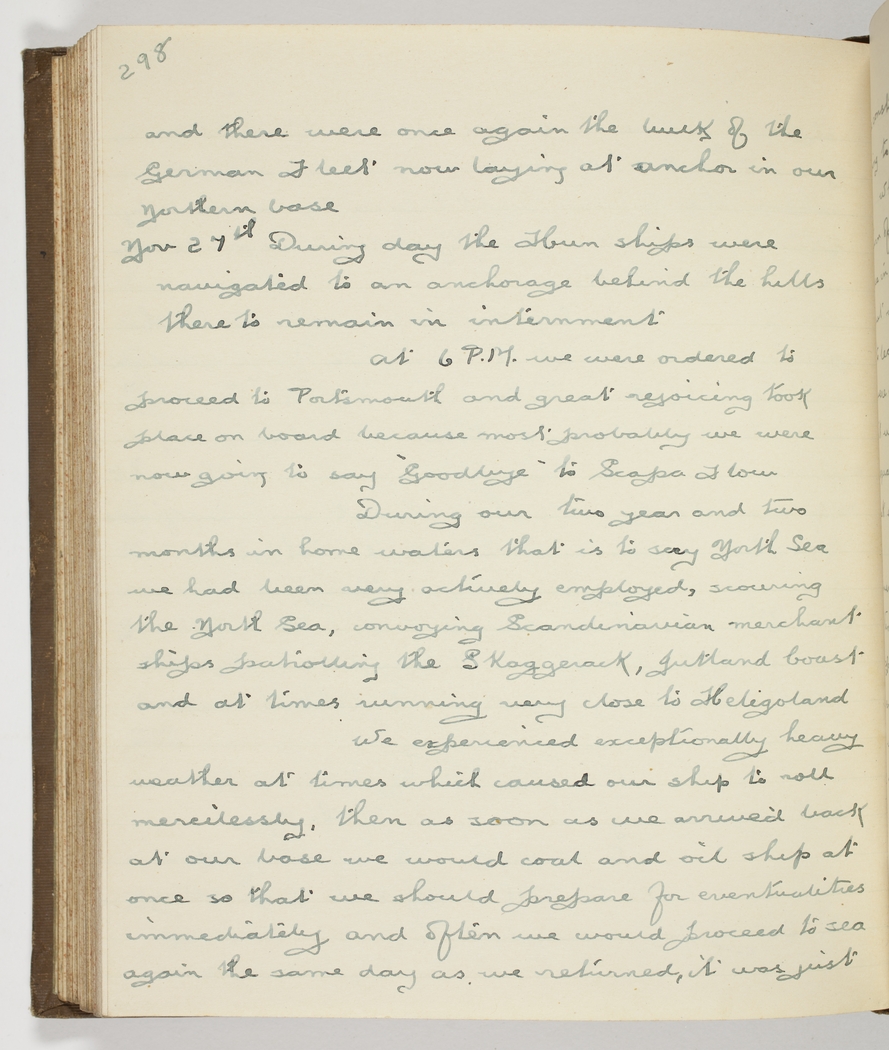 298
and there were once again the bulk of the
German Fleet now laying at anchor in our
Northern base
Nov 27th During day the Hun ships were
navigated to an anchorage behind the hills
there to remain in internment
at 6 P.M. we were ordered to
proceed to Portsmouth and great rejoicing took
place on board because most probably we were
now going to say "Goodbye" to Scapa Flow
During our two year and two
months in home waters that is to say North Sea
we had been very actively employed, scouring
the North Sea, convoying Scandinavian merchant
ships patrolling the Skaggerack, Jutland Coast
and at times running very close to Heligoland
We experienced exceptionally heavy
weather at times which caused our ship to roll
mercilessly, then as soon as we arrived back
at our base we would coal and oil ship at
once so that we should prepare for eventualities
immediately and often we would proceed to sea
again the same day as we returned, it was just